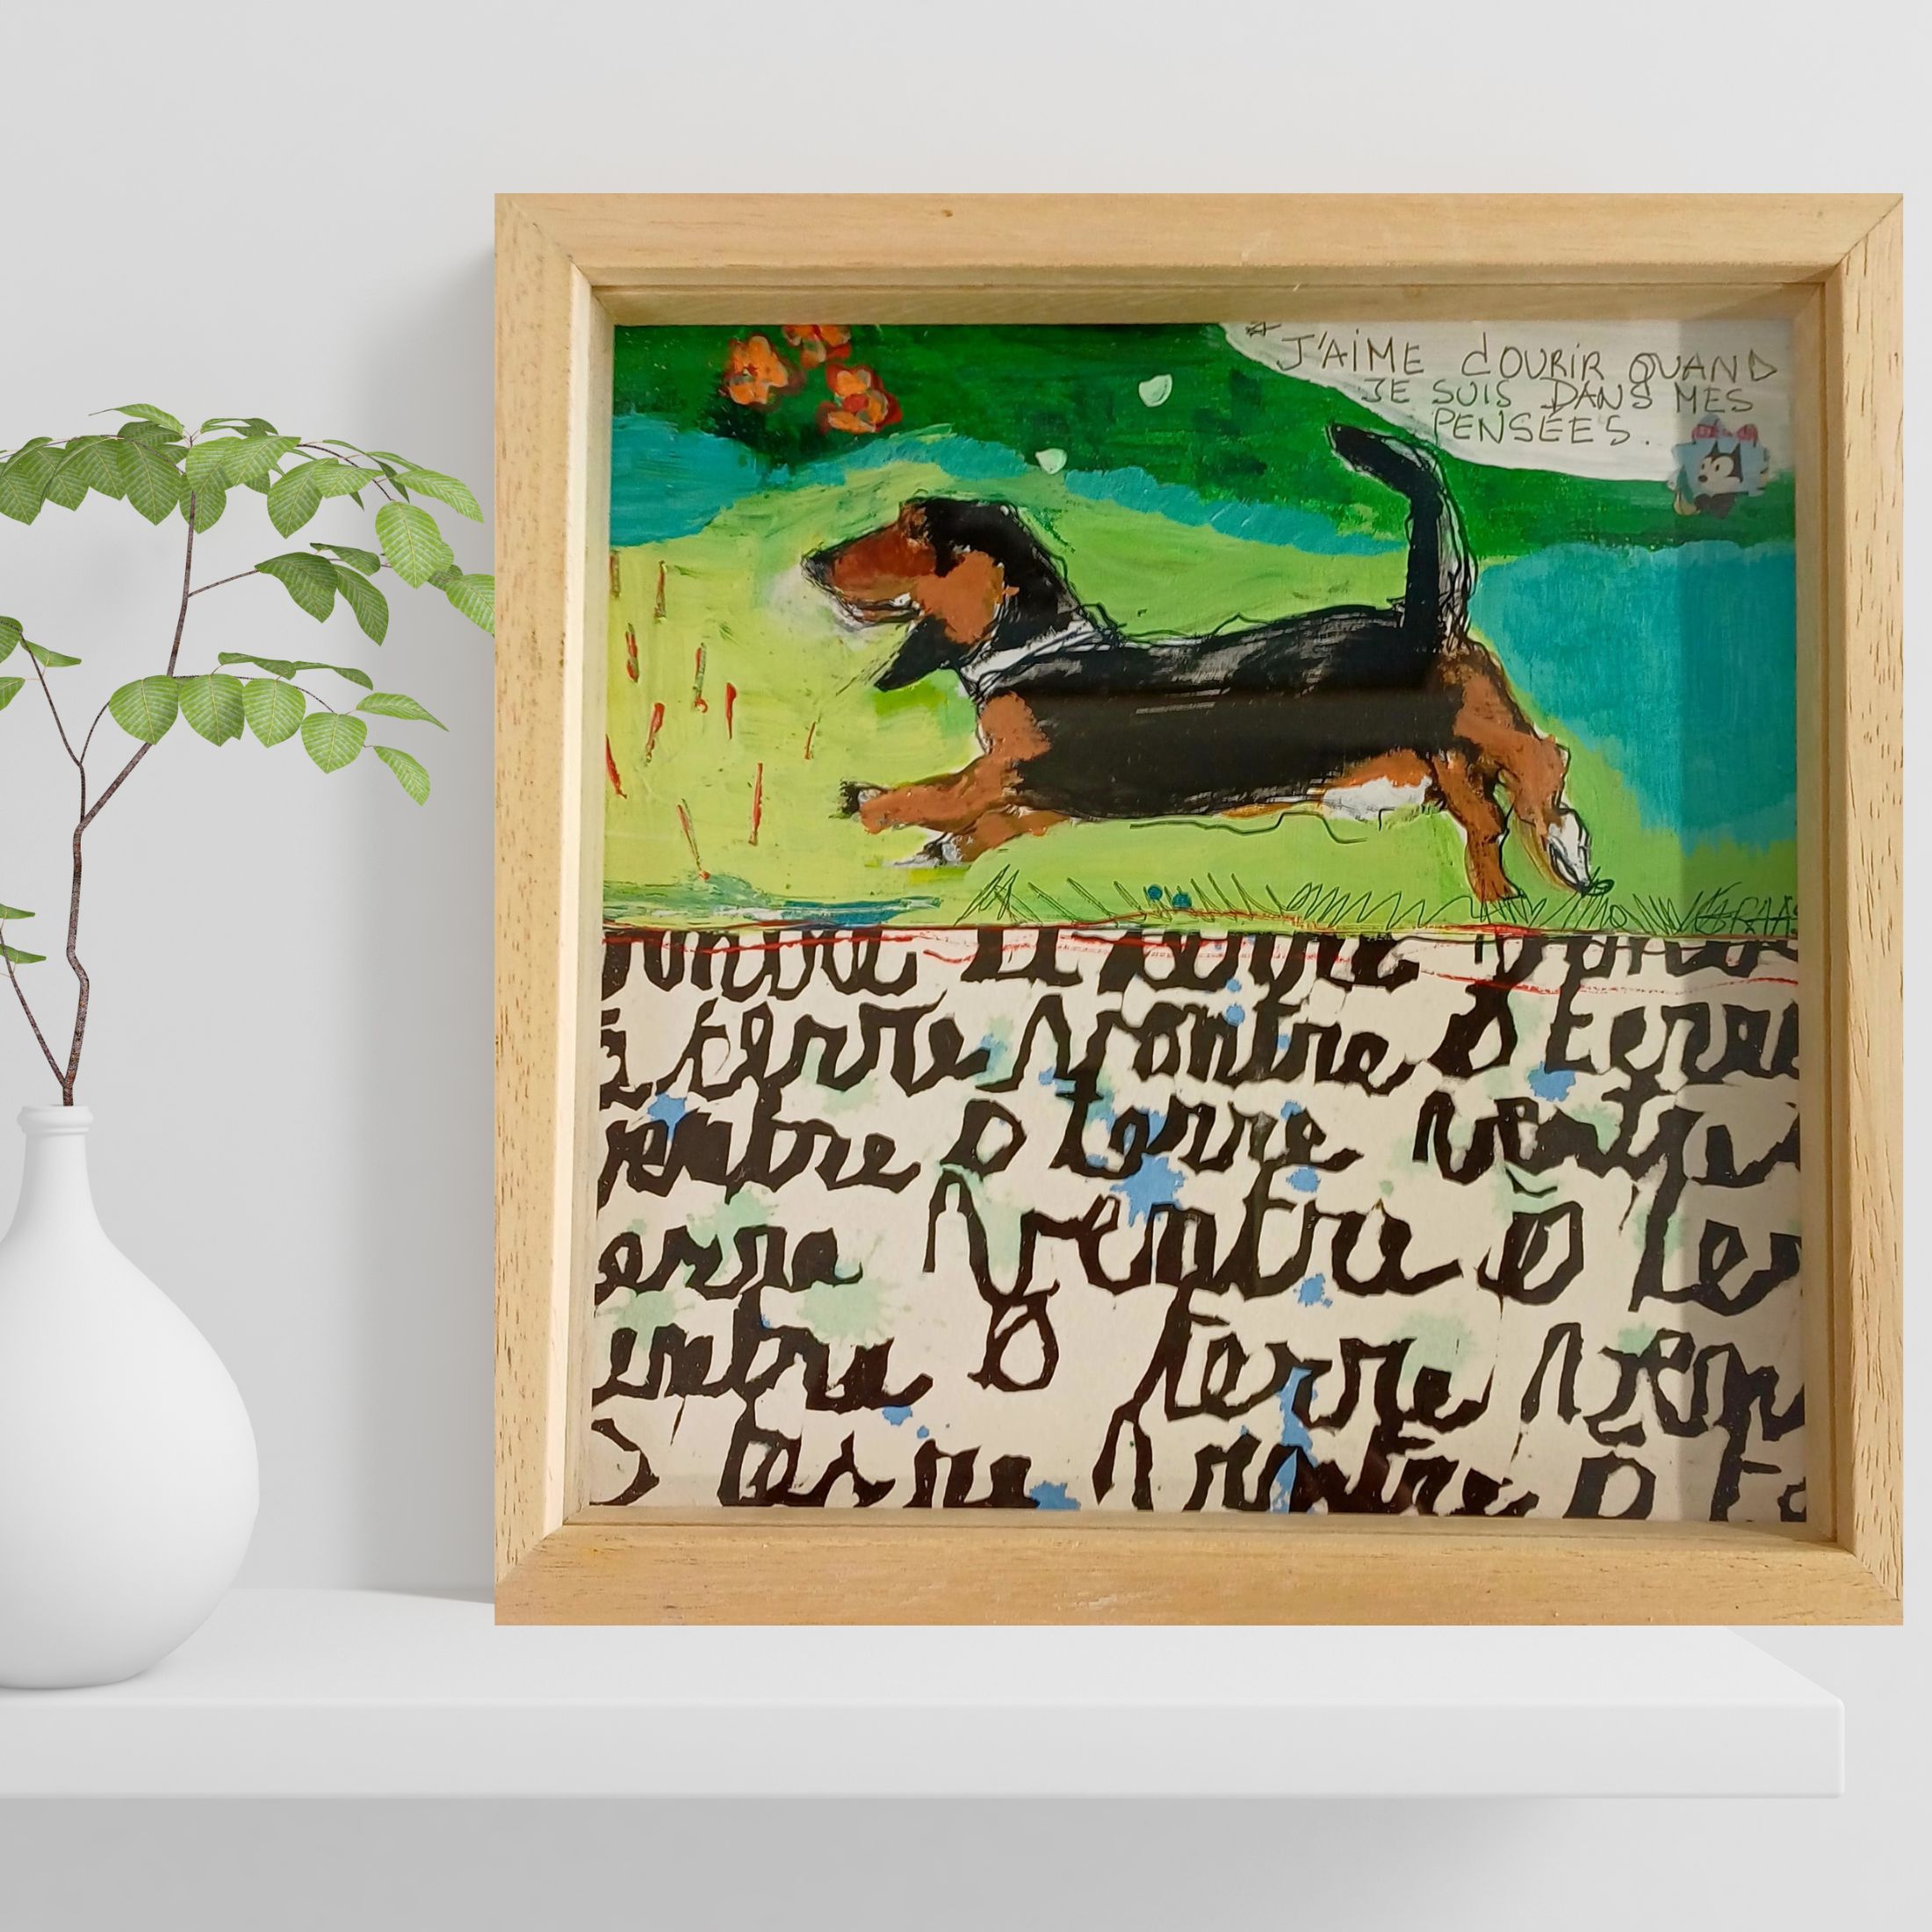 J'AIME COURIR QUAND
JE SUIS DANS MES
PENSÉES.
ventre à terre ventre
à terre ventre à terre
ventre à terre ventre
erre ventre à ter
entre à terre ven
à terre ventre à te